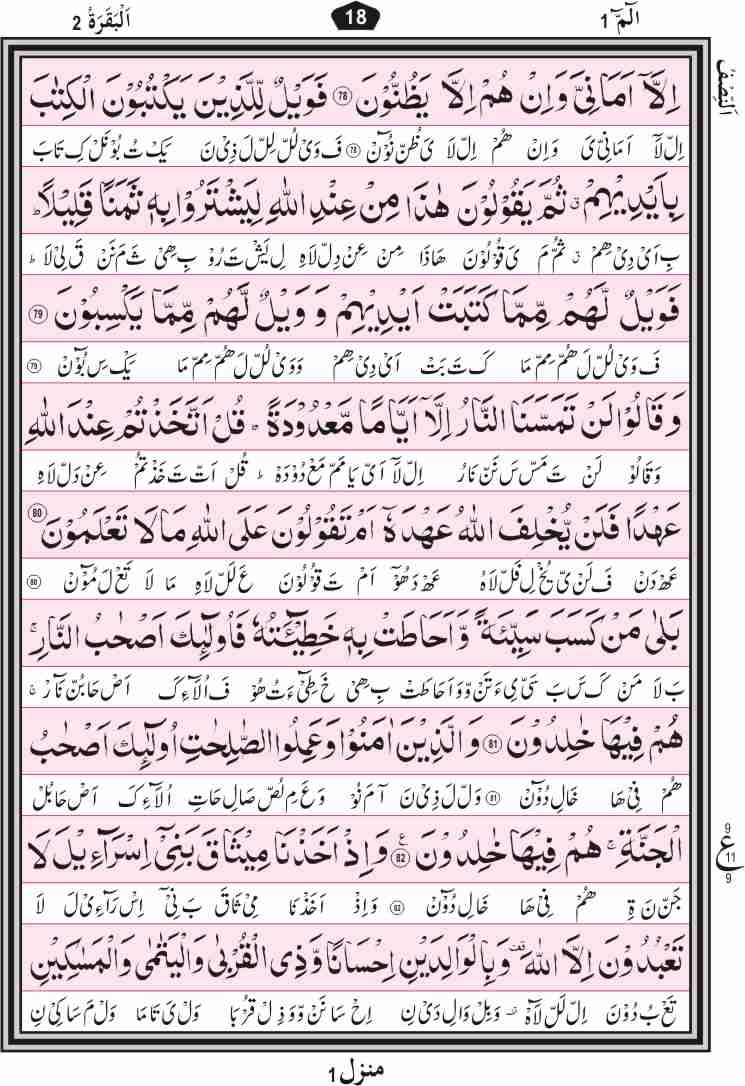 الٓمّٓ 1
18
اَلْبَقَرَةُ 2
اَلنِّصْفُ
اِلَّاۤ اَمَانِیَّ وَاِنْ هُمْ اِلَّا یَظُنُّوْنَ ﴿78﴾ فَوَیْلٌ لِّلَّذِیْنَ یَكْتُبُوْنَ الْكِتٰبَ
اِلْ لَاۤ اَمَانِیْ یَ وَاِنْ هُمْ اِلْ لَا یَ ظُنْ نُوْٓنْ ﴿78﴾ فَ وَیْ لُلْ لِلْ لَ ذِیْ نَ یَكْ تُ بُوْ نَلْ كِ تَابَ
بِاَیْدِیْهِمْ ۫ ثُمَّ یَقُوْلُوْنَ هٰذَا مِنْ عِنْدِ اللّٰهِ لِیَشْتَرُوْا بِهٖ ثَمَنًا قَلِیْلًا ؕ
بِ اَیْ دِیْ هِمْ ۫ ثُمْ مَ یَ قُوْلُوْنَ هَاذَا مِنْ عِنْ دِلْ لَاهِ لِ یَشْ تَ رُوْ بِ هِیْ ثَ مَ نَنْ قَ لِیْ لَا ؕ
فَوَیْلٌ لَّهُمْ مِّمَّا كَتَبَتْ اَیْدِیْهِمْ وَ وَیْلٌ لَّهُمْ مِّمَّا یَكْسِبُوْنَ ﴿79﴾
فَ وَیْ لُلْ لَ هُمْ مِمْ مَا كَ تَ بَتْ اَیْ دِیْ هِمْ وَ وَیْ لُلْ لَ هُمْ مِمْ مَا یَكْ سِ بُوْٓنْ ﴿79﴾
وَ قَالُوْا لَنْ تَمَسَّنَا النَّارُ اِلَّاۤ اَیَّامًا مَّعْدُوْدَةً ؕ قُلْ اَتَّخَذْتُمْ عِنْدَ اللّٰهِ
وَقَالُوْ لَنْ تَ مَسْ سَ نَنْ نَارُ اِلْ لَاۤ اَیْ یَا مَمْ مَعْ دُوْدَهْ ؕ قُلْ اَتْ تَ خَذْ تُمْ عِنْ دَلْ لَاهِ
عَهْدًا فَلَنْ یُّخْلِفَ اللّٰهُ عَهْدَهٗۤ اَمْ تَقُوْلُوْنَ عَلَى اللّٰهِ مَا لَا تَعْلَمُوْنَ ﴿80﴾
عَهْ دَنْ فَ لَنْ یُ یُخْ لِ فَلْ لَاهُ عَهْ دَ هُوْۤ اَمْ تَ قُوْلُوْنَ عَ لَلْ لَاهِ مَا لَا تَعْ لَ مُوْٓنْ ﴿80﴾
بَلٰى مَنْ كَسَبَ سَیِّئَةً وَّ اَحَاطَتْ بِهٖ خَطِیْٓئَتُهٗ فَاُولٰٓئِكَ اَصْحٰبُ النَّارِ ۚ
بَ لَا مَنْ كَ سَ بَ سَیْ یِ ءَ تَنْ وَ وَ اَحَاطَتْ بِ هِیْ خَ طِیْٓ ءَ تُ هُوْ فَ اُلَآءِكَ اَصْ حَابُنْ نَآرْ ۚ
هُمْ فِیْهَا خٰلِدُوْنَ ﴿81﴾ وَ الَّذِیْنَ اٰمَنُوْا وَعَمِلُوا الصّٰلِحٰتِ اُولٰٓئِكَ اَصْحٰبُ
هُمْ فِیْ هَا خَالِ دُوْٓنْ ﴿81﴾ وَلْ لَ ذِیْ نَ آمَ نُوْ وَعَ مِ لُصْ صَالِ حَاتِ اُلَآءِكَ اَصْ حَابُلْ
الْجَنَّةِ ۚ هُمْ فِیْهَا خٰلِدُوْنَ ﴿82﴾ ع وَ اِذْ اَخَذْنَا مِیْثَاقَ بَنِیْۤ اِسْرَآءِیْلَ لَا
جَنْ نَ ةِ هُمْ فِیْ هَا خَالِ دُوْٓنْ ﴿82﴾ وَاِذْ اَخَذْ نَا مِیْ ثَاقَ بَ نِیْۤ اِسْ رَآءِیْ لَ لَا
9
ع
11
9
تَعْبُدُوْنَ اِلَّا اللّٰهَ ۫ وَبِالْوَالِدَیْنِ اِحْسَانًا وَّ ذِی الْقُرْبٰى وَالْیَتٰمٰى وَالْمَسٰكِیْنِ
تَعْ بُ دُوْنَ اِلْ لَلْ لَاهَ ۫ وَ بِلْ وَالِ دَیْ نِ اِحْ سَا نَنْ وَ وَ ذِلْ قُرْبَا وَلْ یَ تَا مَا وَلْ مَ سَا كِیْ نِ
منزل 1